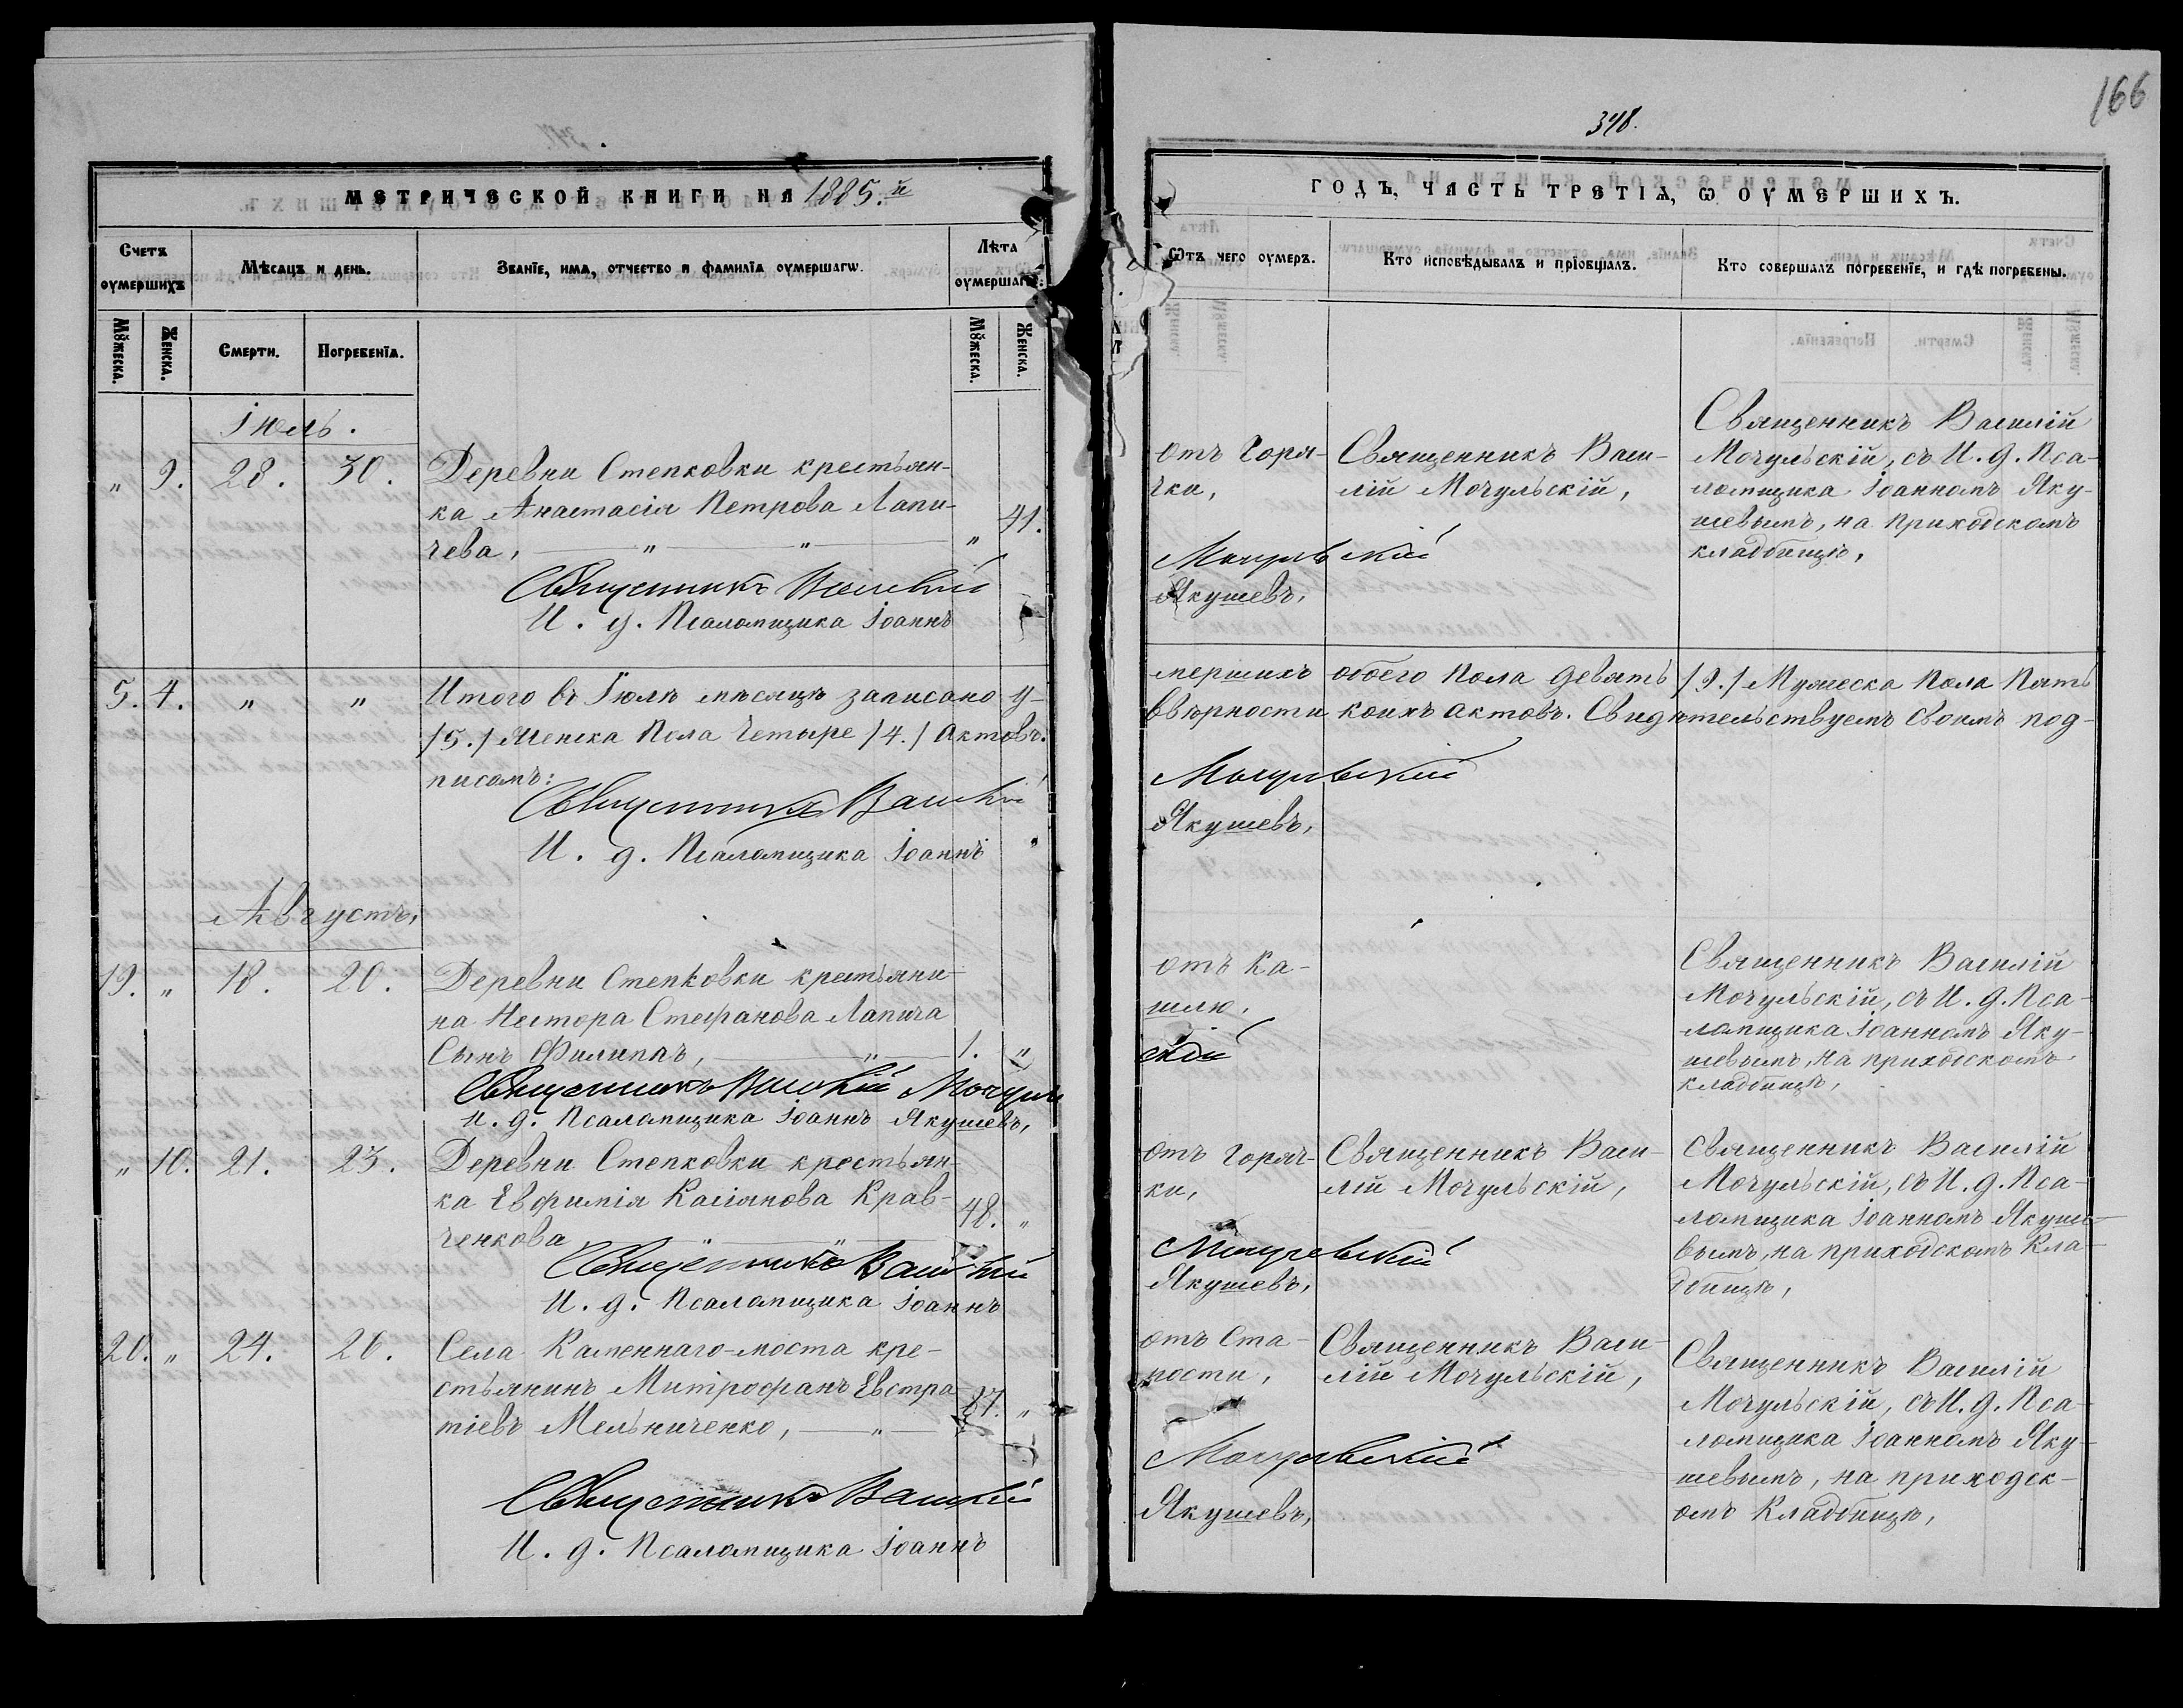 166
348.
МЕТРИЧЕСКОЙ КНИГИ НА 1885.й
ГОДЪ, ЧАСТЬ ТРЕТІѦ, Ѡ ОУМЕРШИХЪ.
Счетъ оумершихъ
Мѣсѧцъ и день.
Званіе, имѧ, отчество и фамиліѧ оумершагѡ.
Лѣта оумершагѡ.
Мꙋжеска.
Женска.
Смерти.
Погребеніѧ.
Мꙋжеска.
Женска.
Ѿтъ чего оумеръ.
Кто исповѣдывалъ и пріобщалъ.
Кто совершалъ погребеніе, и гдѣ погребены.
Іюль.
„ 9. 28. 30.
Деревни Степковки крестьян-
ка Анастасія Петрова Лапи-
чева, „ „ „ 41.
Священникъ Василій
И. д. Псаломщика Іоаннъ
отъ Горя-
чки,
Мочульскій
Якушевъ,
Священникъ Васи-
лій Мочульскій,
Священникъ Василій
Мочульскій, съ И. д. Пса-
ломщика Іоанномъ Яку-
шевымъ, на приходскомъ
кладбищѣ,
5. 4. „ „ Итого въ Іюлѣ мѣсяцѣ записано у-
мершихъ обоего пола девять /9./ Мужеска пола Пять
/5./ Женска Пола Четыре /4./ Актовъ.
Ввѣрности коихъ актовъ. Свидѣтельствуемъ своимъ под-
писомъ:
Священникъ Василій Мочульскій
И. д. Псаломщика Іоаннъ Якушевъ,
Августъ,
19. „ 18. 20.
Деревни Степковки крестьяни-
на Нестора Стефанова Лапича
Сынъ Филиппъ, „ 1. „
Священникъ Василій Мочуль
скій
И. д. Псаломщика Іоаннъ Якушевъ,
отъ Ка-
шлю,
Священникъ Василій
Мочульскій, съ И. д. Пса-
ломщика Іоанномъ Яку-
шевымъ, на приходскомъ
кладбищѣ,
„ 10. 21. 23.
Деревни Степковки крестьян-
ка Евфимія Касіянова Крав-
ченкова „ „ 48. „
Священникъ Василій
И. д. Псаломщика Іоаннъ
отъ горяч-
ки,
Мочульскій
Якушевъ,
Священникъ Васи-
лій Мочульскій,
Священникъ Василій
Мочульскій, съ И. д. Пса-
ломщика Іоанномъ Якуше-
вымъ, на приходскомъ Кла-
дбищѣ,
20. „ 24. 26.
Села Каменнаго-моста кре-
стьянинъ Митрофанъ Евстра
тіевъ Мельниченко, „ 87. „
Священникъ Василій
И. д. Псаломщика Іоаннъ
отъ Ста-
рости,
Мочульскій
Якушевъ,
Священникъ Васи-
лій Мочульскій,
Священникъ Василій
Мочульскій, съ И. д. Пса-
ломщика Іоанномъ Яку-
шевымъ, на приходск-
омъ Кладбищѣ,